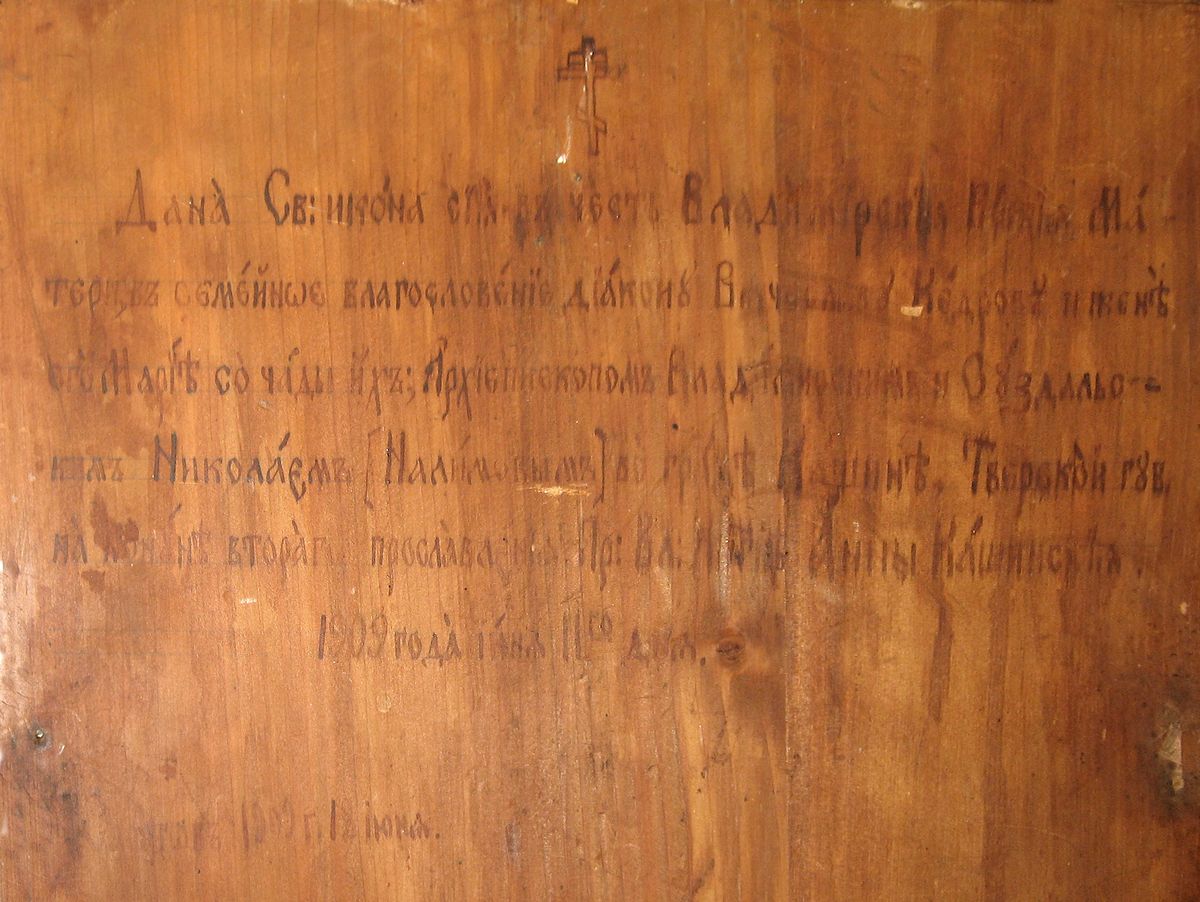 Дана̀ Св: ико́на сїѧ̀ въ че́сть Влади́мїрскїѧ Бж҃їѧ Ма́-
тере, въ семе́йное благослове́нїе дїа́кону Вѧчесла́ву Ке́дрову и женѣ̀
его̀ Марі́и со ча́ды и́хъ; Архїепи́скопомъ Влади́мїрскимъ и Сꙋ́здальс-
кимъ Никола́емъ (Нали́мовымъ) во гра́дѣ Ка́шинѣ, Тверско́й гꙋб.
на втора́гѡ прославле́нїѧ Пр: Бл: Анны Ка́шинскїѧ.
1909 года̀ їю́нѧ 11го днѧ̀.
1909 г. 12 їюнѧ.